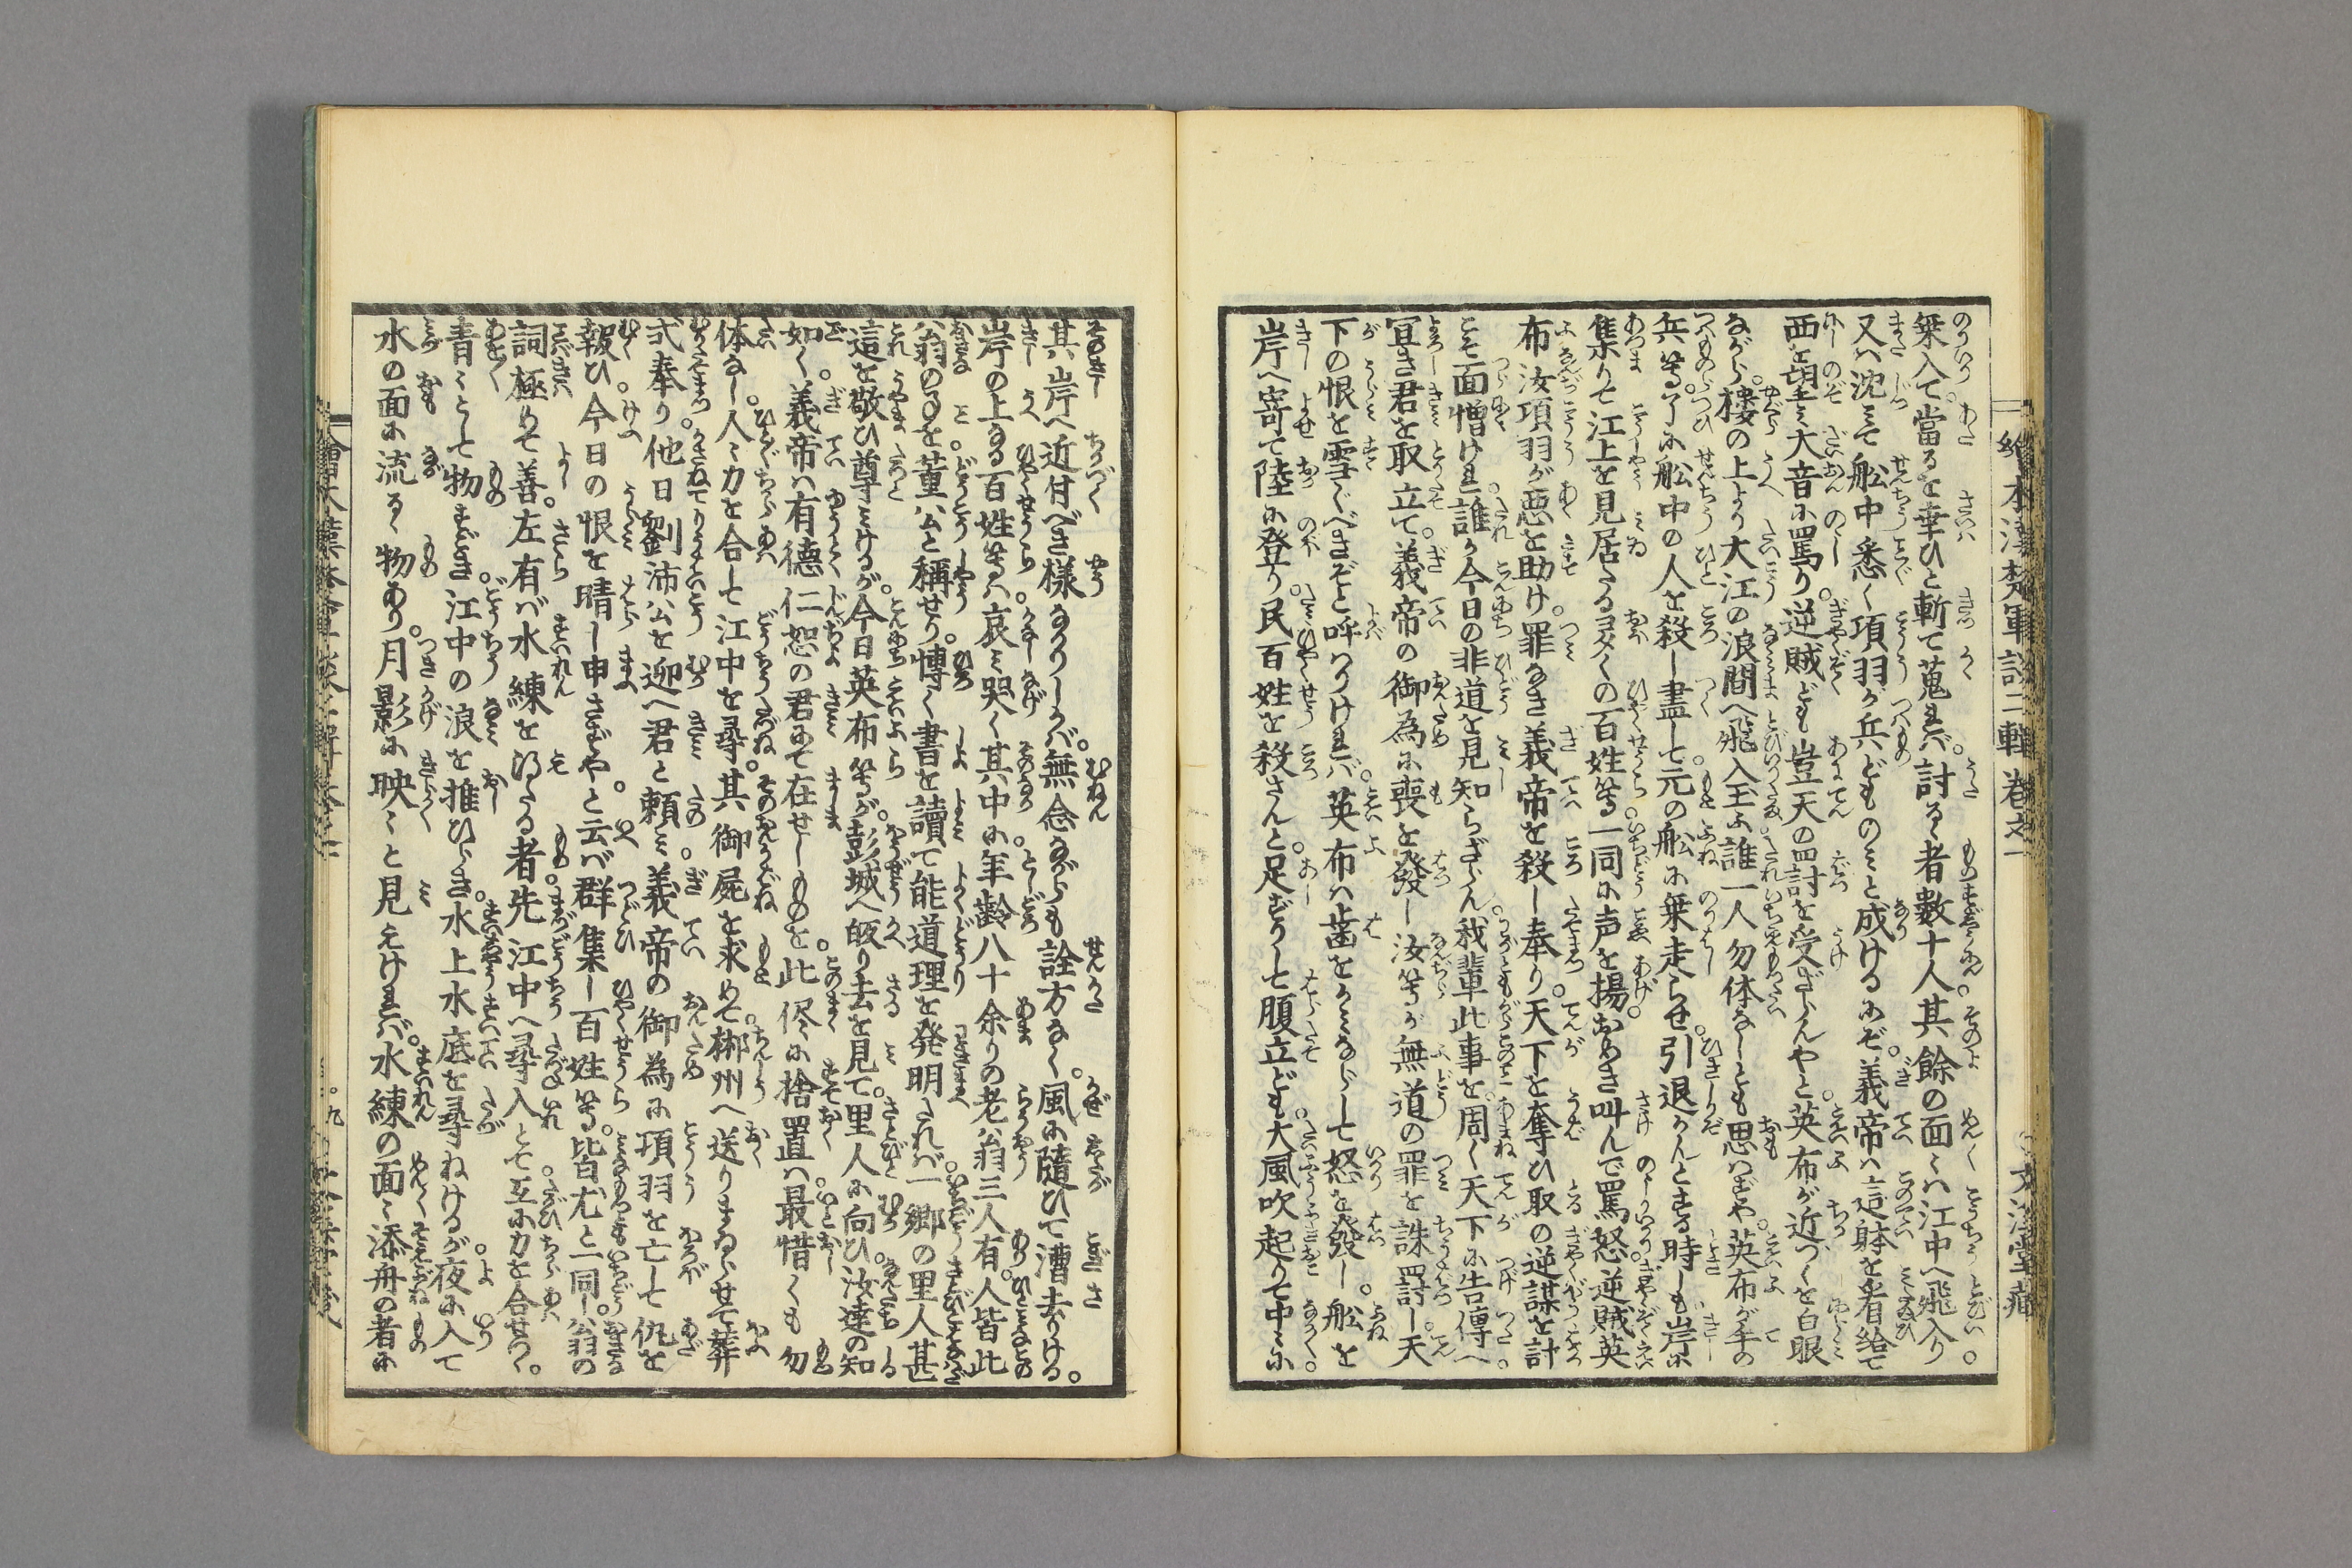 繪本漢楚軍談二輯卷之一
文溪堂藏
乗入て。當るを幸ひと斬て蒐れバ。討るゝ者數十人其餘の面〻ハ江中へ飛入り
又ハ沈ミて船中悉く項羽が兵どものミと成けるにぞ。義帝ハ這躰を看給て
西を望ミ大音に罵り。逆賊ども豈天の罰を受ざらんやと。英布が近づくを白眼
ながら。樓の上より大江の浪間へ飛入玉ふ。誰一人勿体なしとも思ハばや。英布が手の
兵等。了に船中の人を殺し盡して元の船に乗走らせ。引退かんとする時しも岸に
集りて江上を見居たる夛くの百姓等一同に声を揚。おめき叫んで罵怒。逆賊英
布汝項羽が悪を助け。罪なき義帝を殺し奉り。天下を奪ひ取の逆謀を計
こそ面憎けれ。誰か今日の非道を見知らざらん。我輩此事を。周く天下に告傳へ
宜き君を取立て。義帝の御為に喪を發し汝等が無道の罪を誅罰し。天
下の恨を雪ぐべきぞと呼りけれバ。英布ハ歯をかミならして怒を發し。船を
岸へ寄て陸に登り。民百姓を殺さんと。足ずりして腹立ども。大風吹起りて中〻に
其岸へ近付べき樣なかりしかバ。無念ながらも詮方なく。風に隨ひて漕去りける。
岸の上なる百姓等ハ。哀ミ哭く其中に。年齢八十余りの老翁三人有。人皆此
翁のことを。董公と稱せり。慱く書を讀て能道理を発明たれバ。一郷の里人甚
這を敬ひ尊ミけるが。今日英布等が。彭城へ皈り去を見て。里人に向ひ。汝達の知
如く。義帝ハ有德仁恕の君にて在せしものを。此侭に捨置ハ。最惜くも勿
体なし。人〻力を合して江中を尋。其御屍を求めて。郴州へ送りまゐらせて葬
式奉り。他日劉沛公を迎へ君と頼ミ。義帝の御為に項羽を亡して仇を
報ひ。今日の恨を晴し申さずやと。云バ群集し百姓等。皆尤と一同し。翁の
詞極めて善。左有バ水練を得たる者。先江中へ尋入とて。互に力を合せつゝ。
青〻として物すごき。江中の浪を推ひらき。水上水底を尋ねけるが。夜に入て
水の面に流るゝ物あり。月影に映〻と見えけれバ。水練の面〻添舟の者に
九